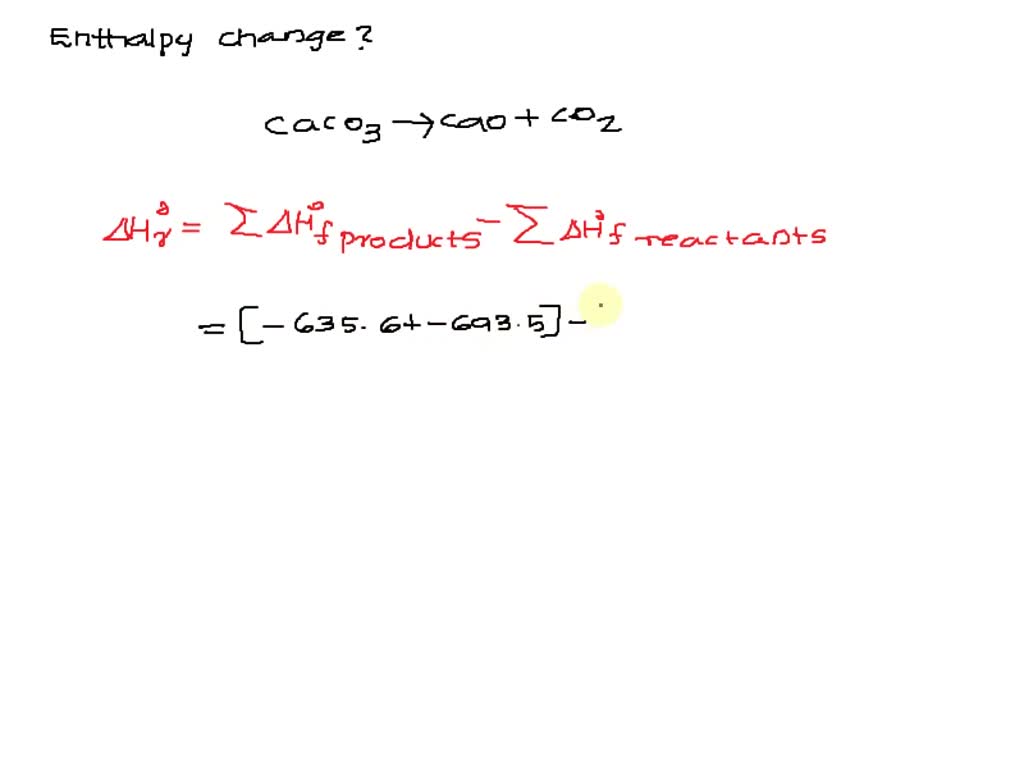 Enthalpy change?
CaCO3 → CaO + CO2
ΔH°r = ΣΔH°f products - ΣΔH°f reactants
= [-635.6+-693.5] -